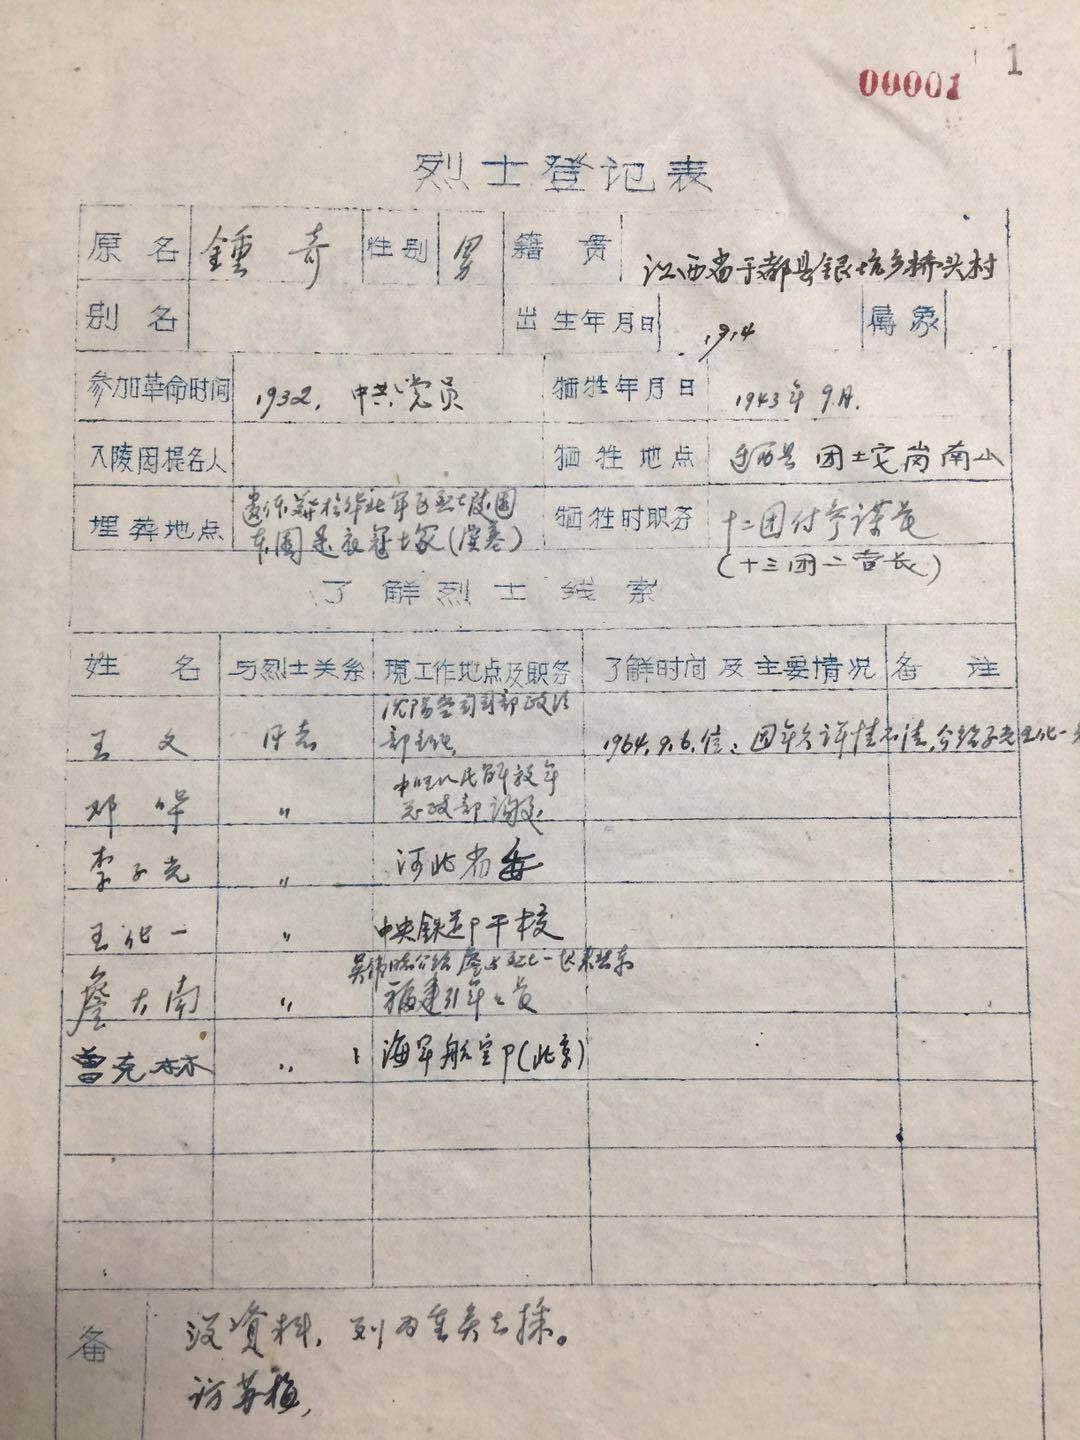 1
00001
烈士登记表
原名 鍾奇 性别 男 籍贯 江西省于都县银坑乡桥头村
别名 出生年月日 1914 属象
参加革命时间 1932，中共党员 牺牲年月日 1943年9月.
入陵园提名人 牺牲地点 迁西县 团土宅岗南山
埋葬地点 遗体葬于华北军区烈士陵园
本园是衣冠塚(
牺牲时职务 十二团付参谋长
(十三团二营长)
了解烈士线索
姓名 与烈士关系 现工作地点及职务 了解时间及主要情况 备注
王文 同志 沈阳空司司部政治
部主任，
1964.9.6.信：因年久详情不清，介绍李子光王化一
邓 〃 解放军
总政部
李子光 〃 河北省委
王化一 〃 中央铁道P干校
詹大南 〃 福建
曾克林 〃 海军航空P(北京)
备 没资料，列为重点去採。
访苏梅，